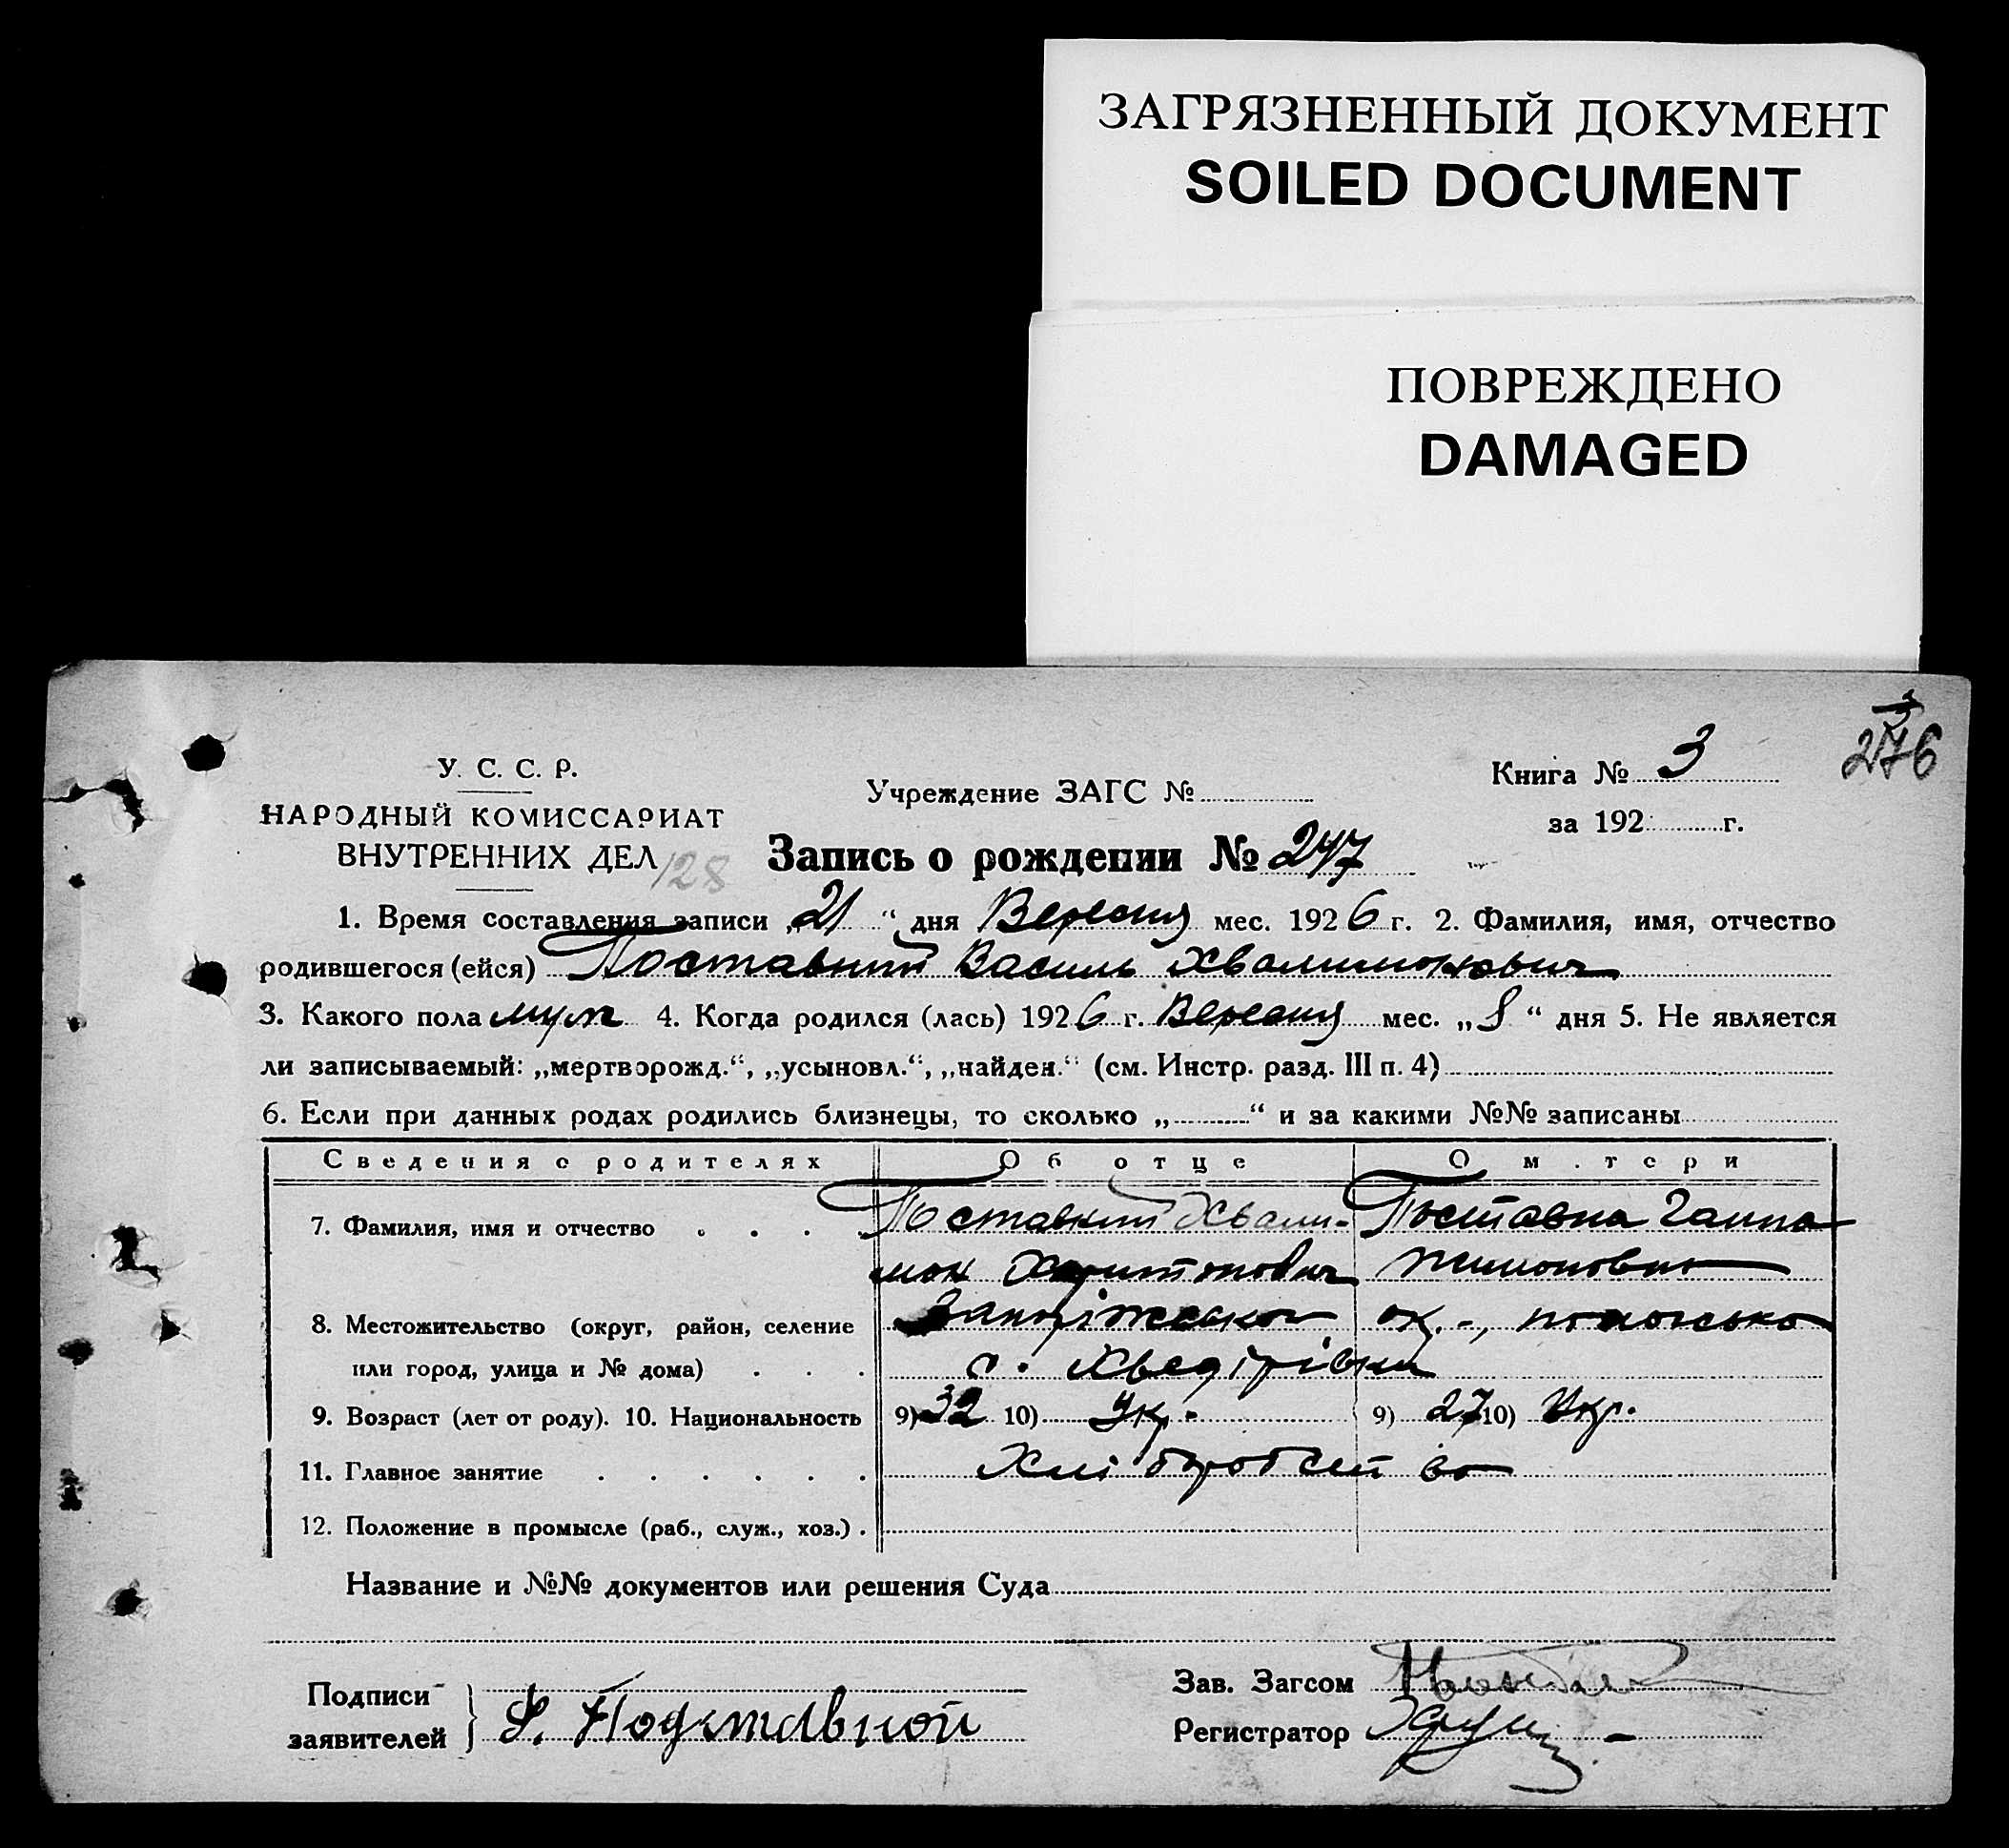 ЗАГРЯЗНЕННЫЙ ДОКУМЕНТ
SOILED DOCUMENT
ПОВРЕЖДЕНО
DAMAGED
276
У. С. С. Р.
НАРОДНЫЙ КОМИССАРИАТ
ВНУТРЕННИХ ДЕЛ 128
Учреждение ЗАГС №
Книга № 3
за 192 г.
Запись о рождении № 247
1. Время составления записи „21“ дня Вересня мес. 1926 г. 2. Фамилия, имя, отчество
родившегося (ейся) Поставний Василь Хвалимонович
3. Какого пола муж 4. Когда родился (лась) 1926 г. Вересня мес. „8“ дня 5. Не является
ли записываемый: „мертворожд.“, „усыновл.“, „найден.“ (см. Инстр. разд. III п. 4)
6. Если при данных родах родились близнецы, то сколько „ “ и за какими №№ записаны
Сведения о родителях Об отце О м.тери
7. Фамилия, имя и отчество Поставний Хвали- Поставна Ганна
мон Харитонович
8. Местожительство (округ, район, селение Запоріжської ок.
или город, улица и № дома) с. Хведорівки
9. Возраст (лет от роду). 10. Национальность 9) 32 10) Ук. 9) 27 10) Укр.
11. Главное занятие Хліборобство
12. Положение в промысле (раб., служ., хоз.)
Название и №№ документов или решения Суда
Подписи
заявителей } Ф. Подставной
Зав. Загсом
Регистратор